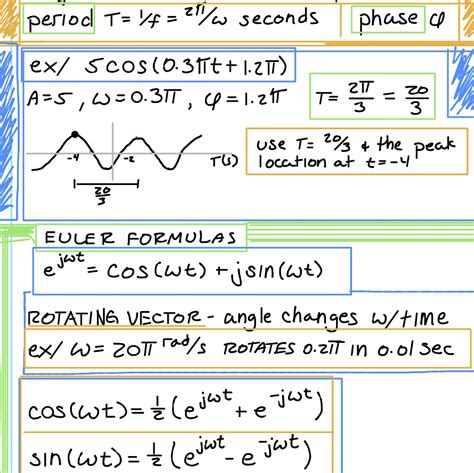 period T = 1/f = 2π/ω seconds
phase φ
ex/ 5cos(0.3πt + 1.2π)
A=5, ω=0.3π, φ=1.2π
T = 2π/3 = 20/3
-4 -2 T(s)
20/3
use T= 20/3 & the peak
location at t=-4
EULER FORMULAS
e^jωt = cos(ωt) + jsin(ωt)
ROTATING VECTOR - angle changes w/time
ex/ ω = 20π rad/s ROTATES 0.2π in 0.01 sec
cos(ωt) = 1/2 (e^jωt + e^-jωt)
sin(ωt) = 1/2 (e^jωt - e^-jωt)